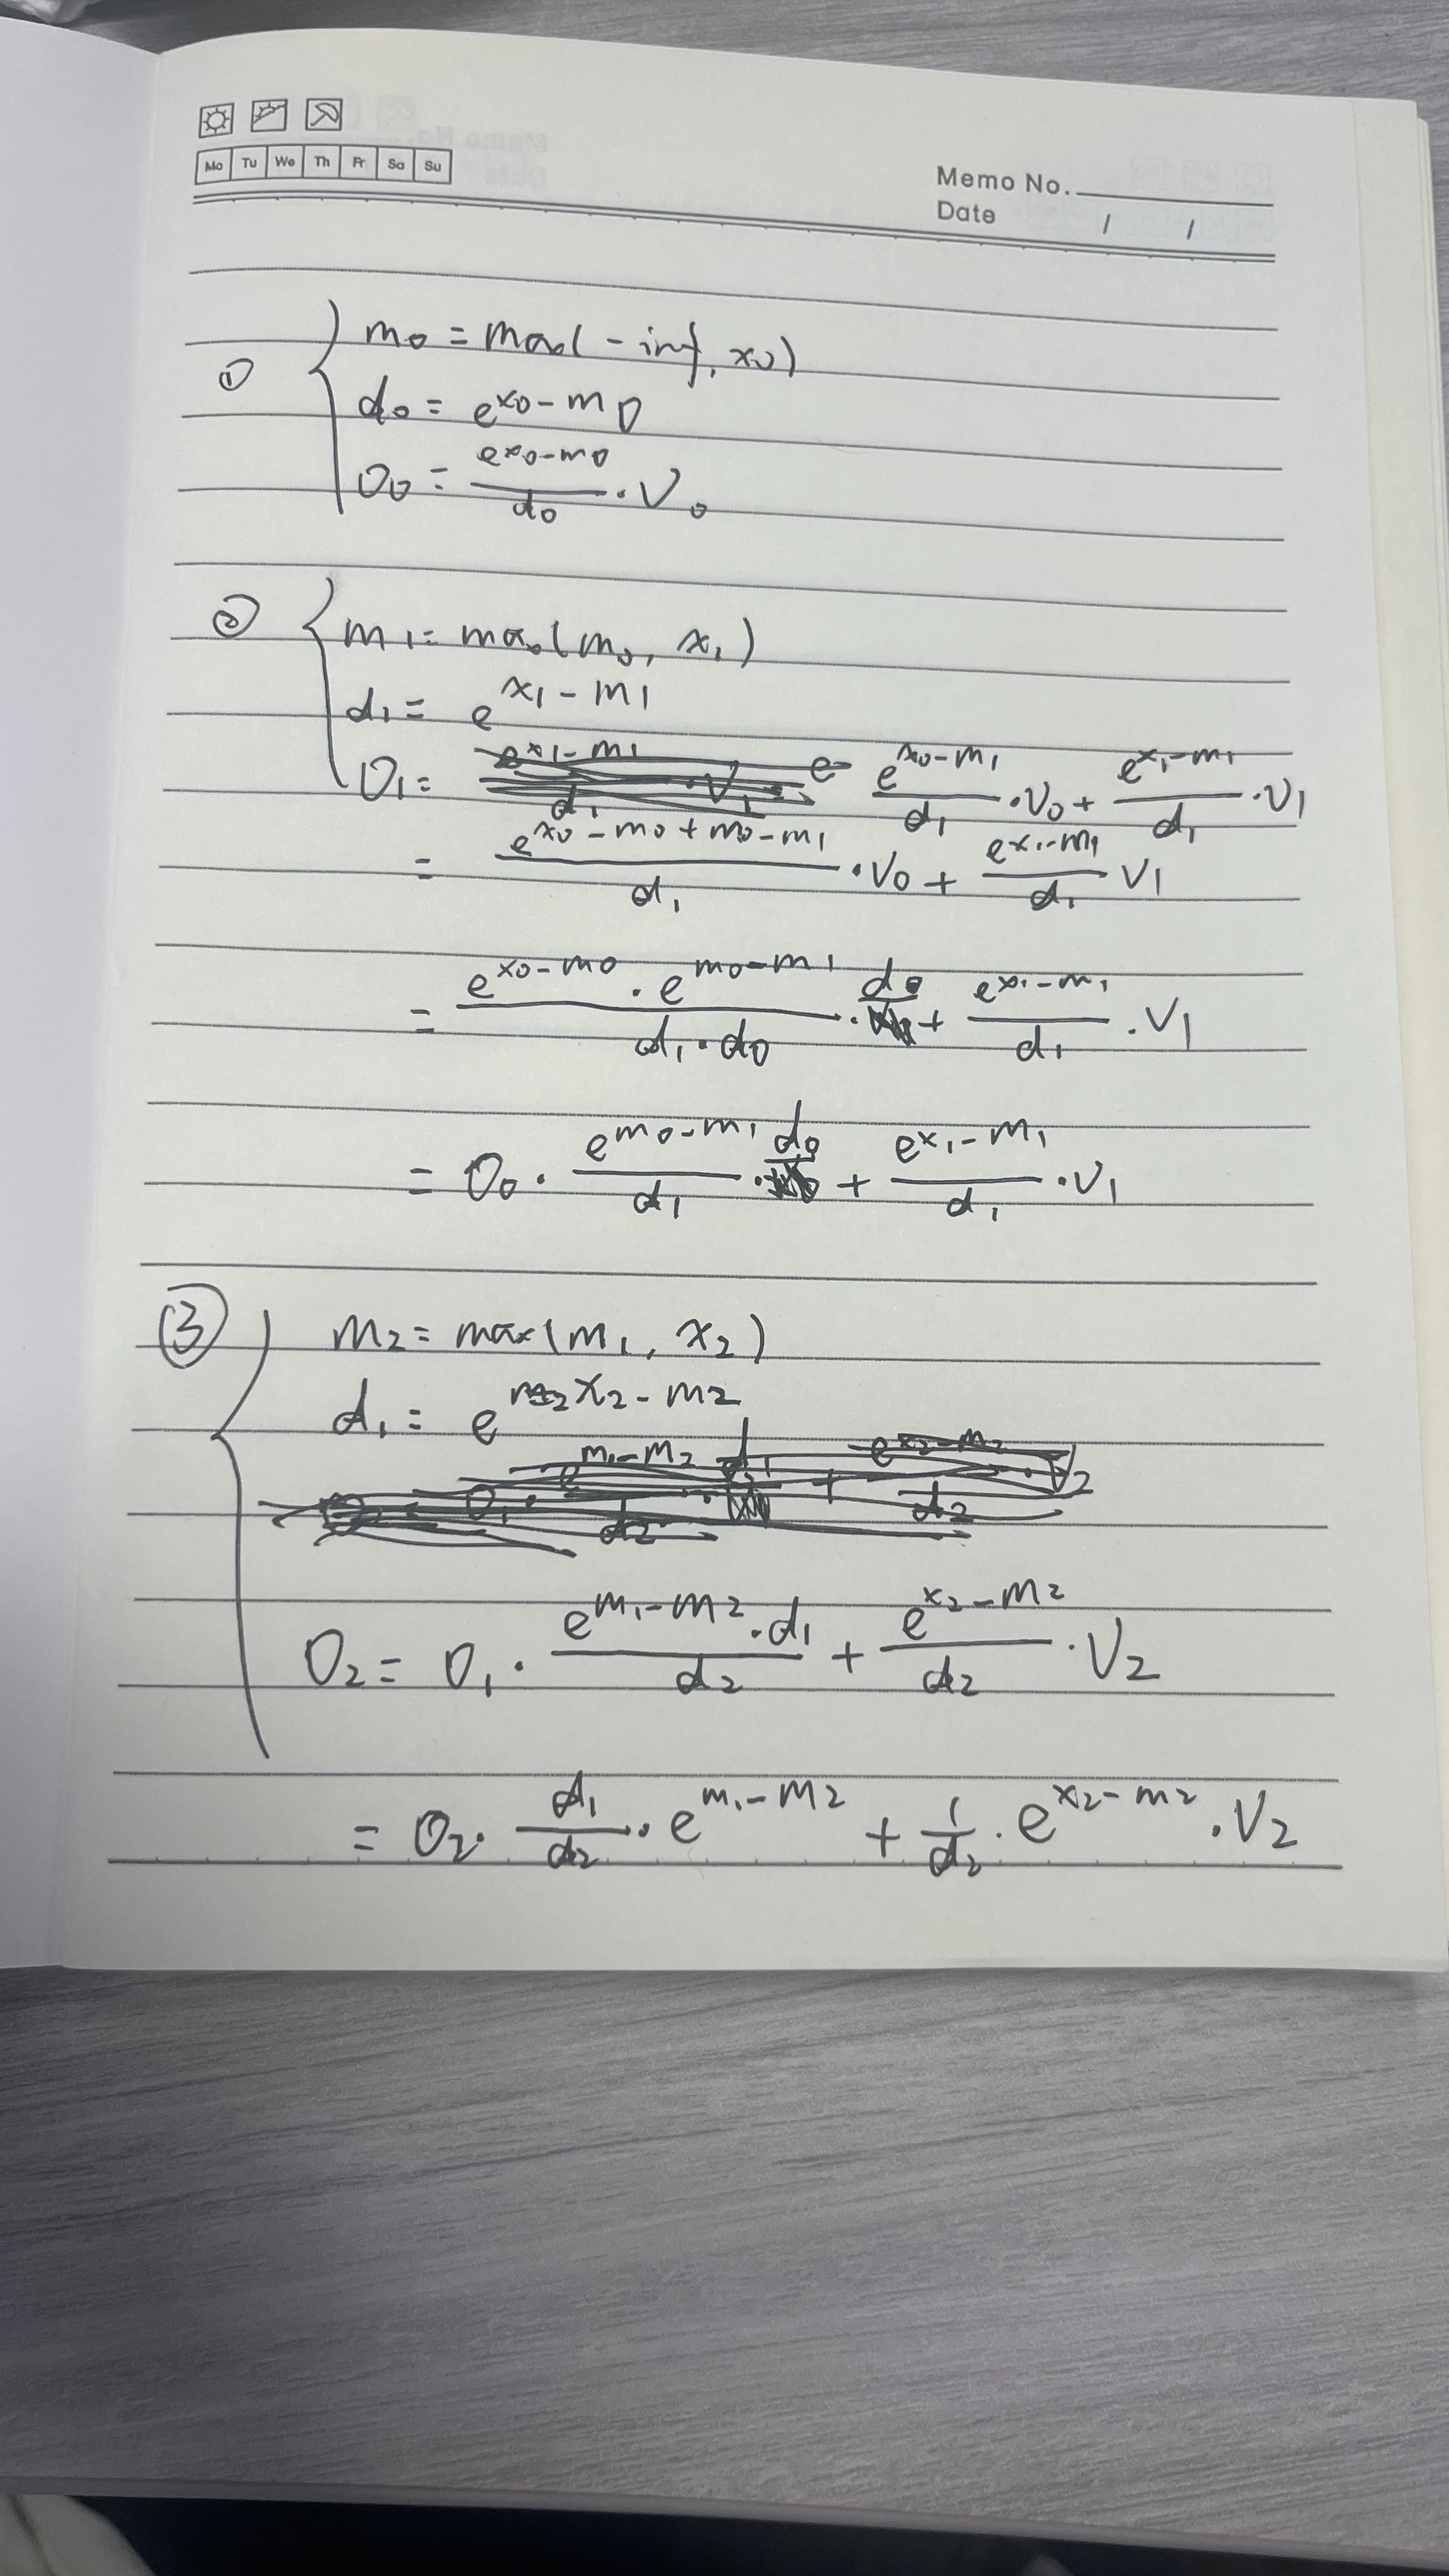 Mo Tu We Th Fr Sa Su
Memo No.
Date / /
① m₀ = max(-inf, x₀)
d₀ = e^{x₀-m₀}
O₀ = \frac{e^{x₀-m₀}}{d₀} · V₀
② m₁ = max(m₀, x₁)
d₁ = e^{x₁-m₁}
O₁ = \frac{e^{x₀-m₁}}{d₁} · V₀ + \frac{e^{x₁-m₁}}{d₁} · V₁
= \frac{e^{x₀-m₀+m₀-m₁}}{d₁} · V₀ + \frac{e^{x₁-m₁}}{d₁} V₁
= \frac{e^{x₀-m₀} · e^{m₀-m₁}}{d₁ · d₀} · d₀ + \frac{e^{x₁-m₁}}{d₁} · V₁
= O₀ · \frac{e^{m₀-m₁}}{d₁} · d₀ + \frac{e^{x₁-m₁}}{d₁} · V₁
③ m₂ = max(m₁, x₂)
d₁ = e^{x₂-m₂}
O₂ = O₁ · \frac{e^{m₁-m₂} · d₁}{d₂} + \frac{e^{x₂-m₂}}{d₂} · V₂
= O₂ · \frac{d₁}{d₂} · e^{m₁-m₂} + \frac{1}{d₂} · e^{x₂-m₂} · V₂